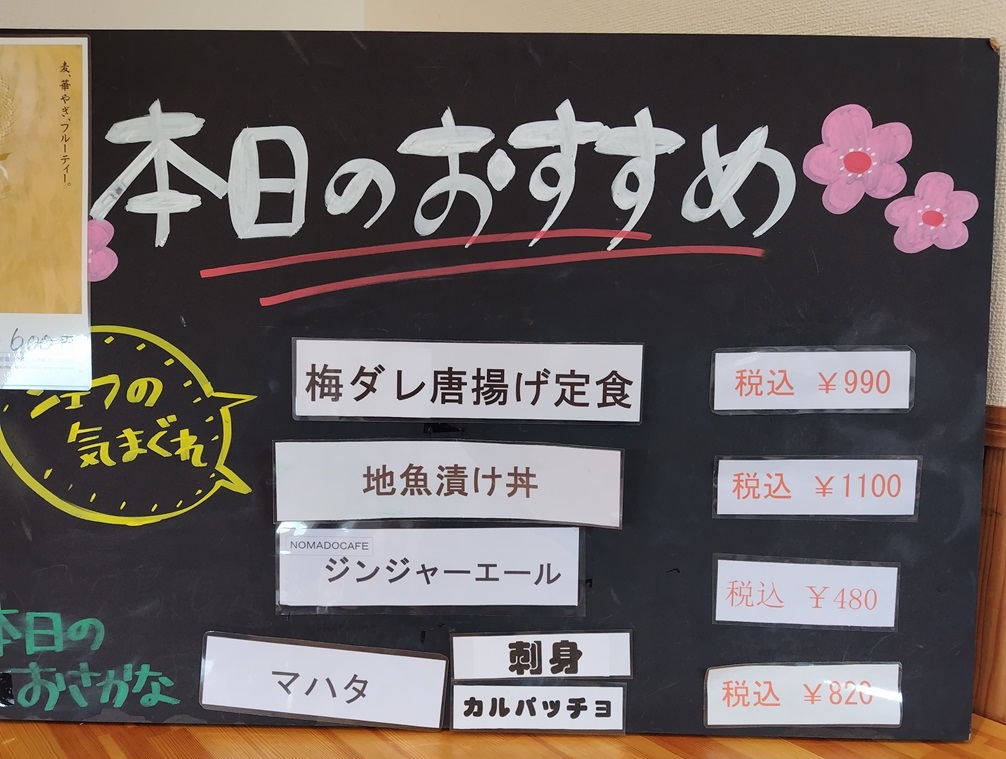 麦、華やぎ、フルーティー。
本日のおすすめ
600円
シェフの
気まぐれ
梅ダレ唐揚げ定食 税込 ¥990
地魚漬け丼 税込 ¥1100
NOMADOCAFE
ジンジャーエール 税込 ¥480
本日の
おさかな
マハタ 刺身 税込 ¥820
カルパッチョ